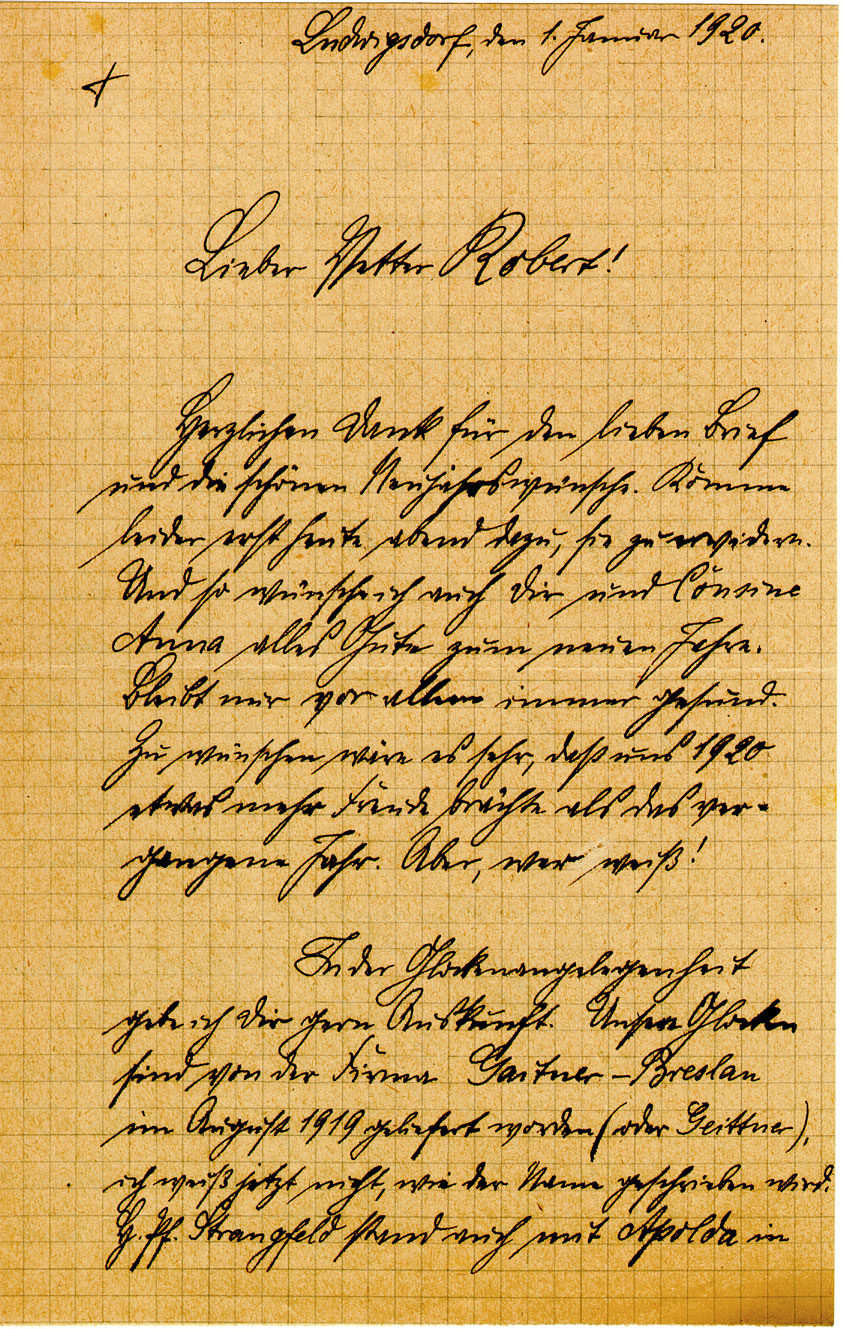 Ludwigsdorf, den 1. Januar 1920.
Lieber Vetter Robert!
Herzlichen Dank für den lieben Brief
und die schönen Neujahrswünsche. Komme
leider erst heute abend dazu, sie zu erwidern.
Und so wünsche ich auch Dir und Cousine
Anna alles Gute zum neuen Jahre.
Bleibt nur vor allem immer gesund.
Zu wünschen wäre es sehr, daß uns 1920
etwas mehr Freude brächte als das ver-
gangene Jahr. Aber, wer weiß!
In der Glockenangelegenheit
gebe ich Dir gern Auskunft. Unsere Glocken
sind von der Firma Gaitner – Breslau
im August 1919 geliefert worden (oder Geittner),
ich weiß jetzt nicht, wie der Name geschrieben wird.
H. Pf. Strangfeld stand auch mit Apolda in